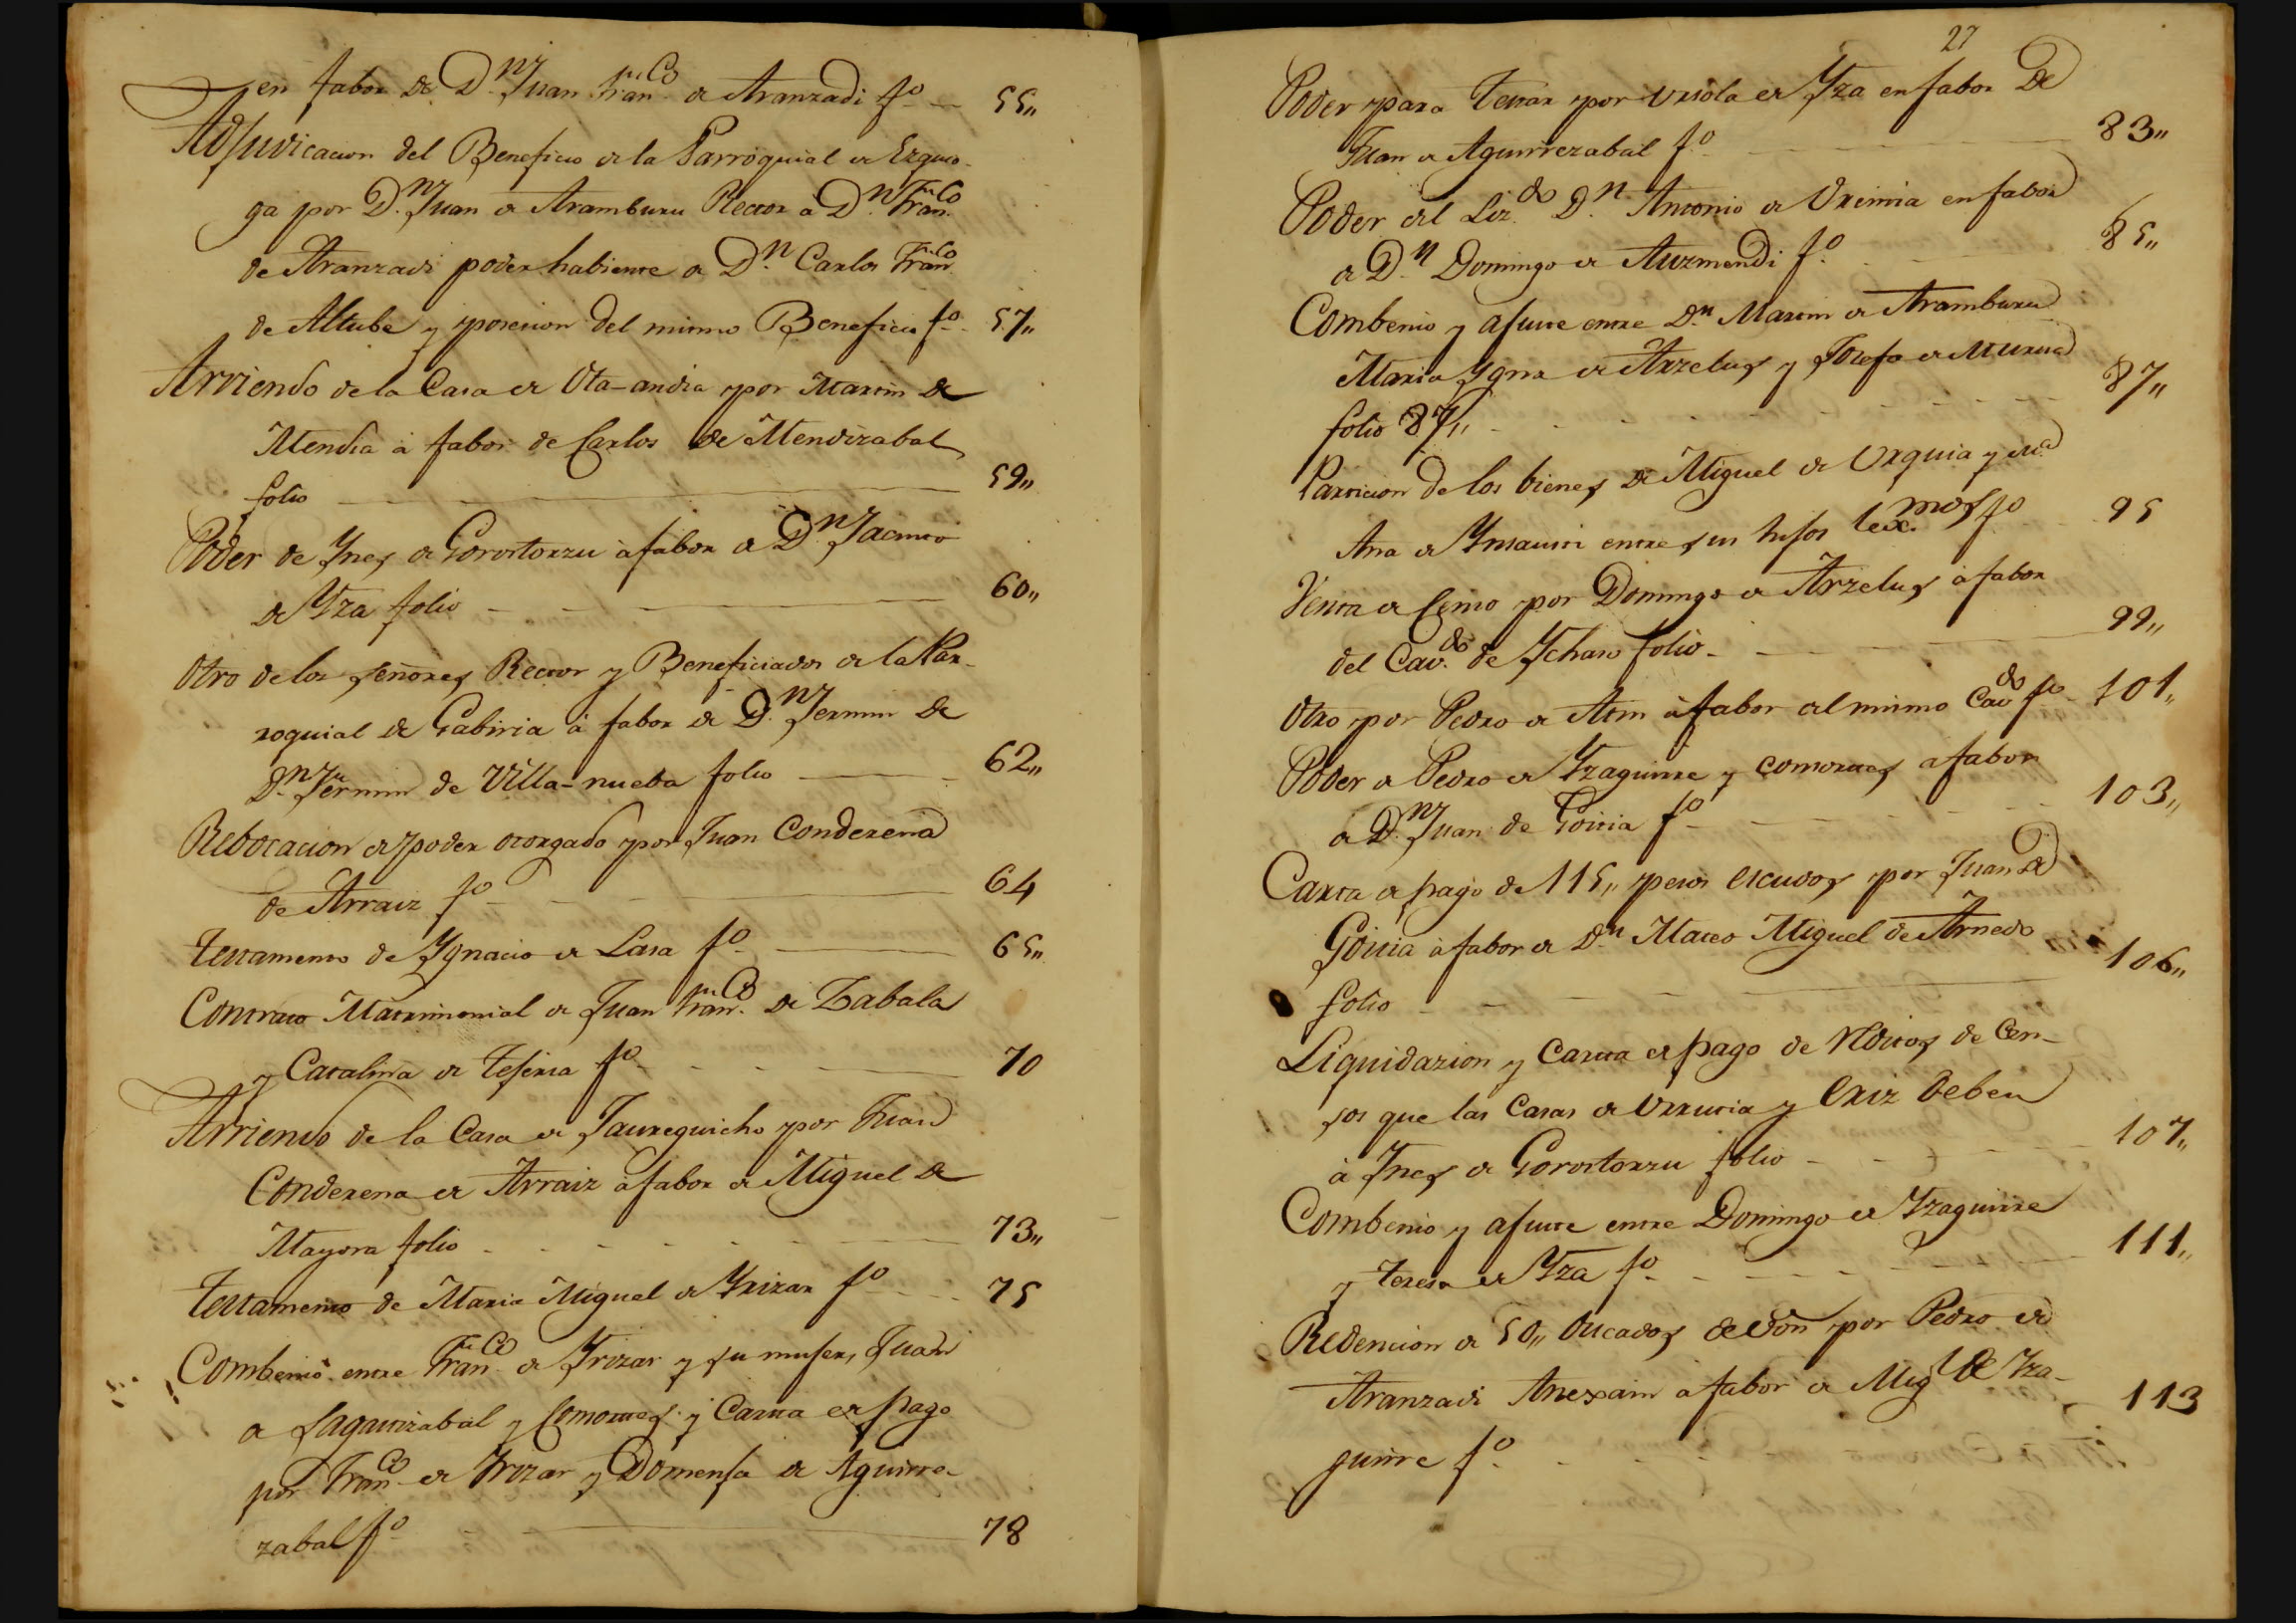 en fabor de D.n Juan Fran.co de Aranzadi fo 55,,
Adjudicacion del Beneficio de la Parroquial de Ezquio-
ga por D.n Juan de Aramburu Rector a D.n Fran.co
de Aranzadi poder habiente de D.n Carlos Fran.co
de Altube y posesion del mismo Beneficio fo 57,,
Arriendo de la Casa de Ota-andia por Martin de
Mendia à fabor de Carlos de Mendizabal
folio 59,,
Poder de Ynes de Gorostorzu à fabor de D.n Jacinto
de Yza folio 60,,
Otro de los señores Rector y Beneficiados de la Par-
roquial de Gabiria à fabor de D.n Fermin de
D.n Fermin de Villa-nueba folio 62,,
Rebocacion de poder otorgado por Juan Conderena
de Arraiz fo 64
Testamento de Ygnacio de Lasa fo 65,,
Contrato Matrimonial de Juan Fran.co de Zabala
y Catalina de Tejeria fo 70
Arriendo de la Casa de Jaureguicho por Juan
Conderena de Arraiz à fabor de Miguel de
Mayora folio 73,,
Testamento de Maria Miguel de Yrizar fo 75
Combenio entre Fran.co de Yrizar y su muger, Juan
de Sagurizabal y Consortes y Carta de pago
por Fran.co de Yrizar y Domenja de Aguirre-
zabal fo 78
27
Poder para Testar por Ursola de Yza en fabor de
Juan de Aguirrezabal fo 83,,
Poder del Liz.do D.n Antonio de Urximia en fabor
de D.n Domingo de Auzmendi fo 85,,
Combenio y ajuste entre D.n Martin de Aramburu
Maria Ygn.a de Arzelus y Josefa de Murua
folio 87,, 87,,
Particion de los bienes de Miguel de Urquia y
Ana de Ynsausti entre sus hijos lex.mos fo 95
Venta de Censo por Domingo de Arzelus à fabor
del Cav.do de Ychaso folio 99,,
Otro por Pedro de Atin à fabor del mismo Cav.do fo 101,,
Poder de Pedro de Yzaguirre y consortes a fabor
de D.n Juan de Goitia fo 103,,
Carta de pago de 115,, pesos escudos por Juan de
Goitia à fabor de D.n Mateo Miguel de Arnedo
folio 106,,
Liquidazion y Carta de pago de Reditos de Cen-
sos que las Casas de Urrutia y Oriz deben
à Ynes de Gorostorzu folio 107,,
Combenio y ajuste entre Domingo de Yzaguirre
y Teresa de Yza fo 111,,
Redencion de 50,, Ducados de Von por Pedro de
Aranzadi Anexain à fabor de Mig.l de Yza-
guirre fo 113